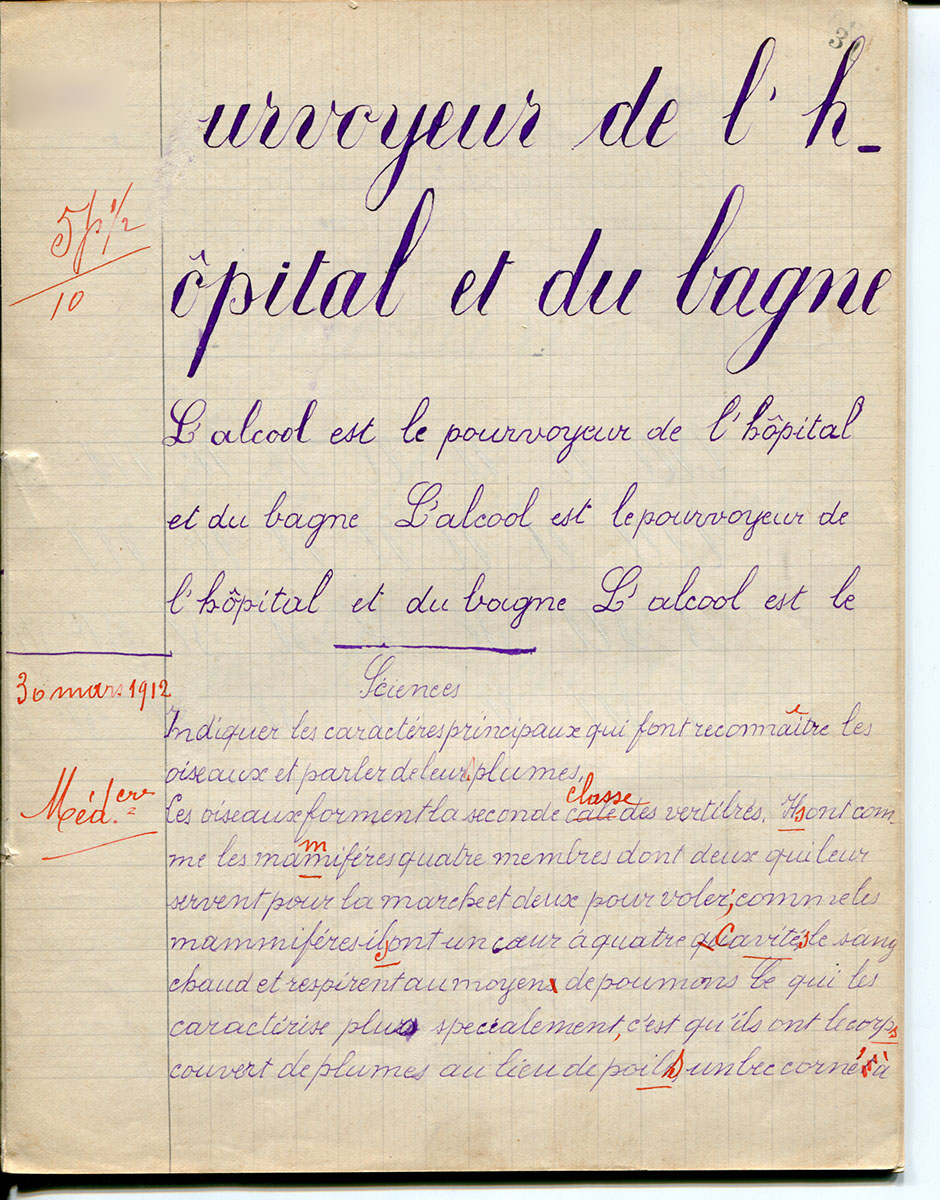 3
urvoyeur de l'h-
5p 1/2
10
ôpital et du bagne
L'alcool est le pourvoyeur de l'hôpital
et du bagne L'alcool est le pourvoyeur de
l'hôpital et du bagne L'alcool est le
30 mars 1912
Sciences
Indiquer les caractéres principaux qui font reconnaître les
oiseaux et parler de leurs plumes.
classe
Méd.cre
Les oiseaux forment la seconde cale des vertibrés. Ils ont com-
m
me les mamiféres quatre membres dont deux qui leur
servent pour la marche et deux pour voler; comme les
mammiféres ils ont un cœur à quatre cavités, le sang
chaud et respirent au moyen de poumons Ce qui les
caractérise plus specialement, c'est qu'ils ont le corps
couvert de plumes au lieu de poils, un bec corné à